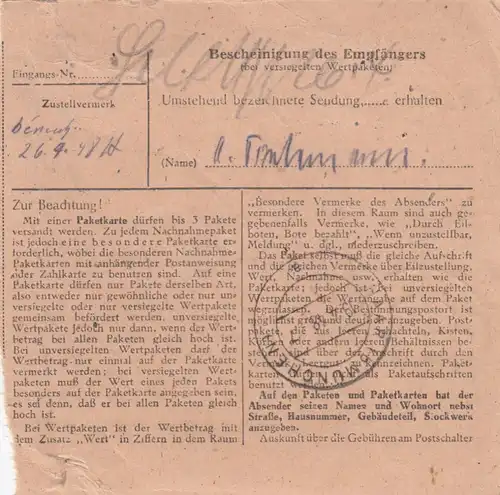 Bescheinigung des Empfängers
(bei versiegelten Wertpaketen)
Eingangs-Nr.
Zustellvermerk
Umstehend bezeichnete Sendung,.....c erhalten
26.9.48
(Name)
Zur Beachtung!
Mit einer Paketkarte dürfen bis 3 Pakete
versandt werden. Zu jedem Nachnahmepaket
ist jedoch eine besondere Paketkarte er-
forderlich, wobei die besonderen Nachnahme-
Paketkarten mit anhängender Postanweisung
oder Zahlkarte zu benutzen sind. Auf eine
Paketkarte dürfen nur Pakete derselben Art,
also entweder nur gewöhnliche oder nur un-
versiegelte oder nur versiegelte Wertpakete
gemeinsam befördert werden, unversiegelte
Wertpakete jedoch nur dann, wenn der Wert-
betrag bei allen Paketen gleich hoch ist.
Bei unversiegelten Wertpaketen darf der
Wertbetrag nur einmal auf der Paketkarte
vermerkt werden; bei versiegelten Wert-
paketen muß der Wert eines jeden Pakets
besonders auf der Paketkarte angegeben sein,
es sei denn, daß er bei allen Paketen gleich
hoch ist.
Bei Wertpaketen ist der Wertbetrag mit
dem Zusatz „Wert" in Ziffern in dem Raum
„Besondere Vermerke des Absenders" zu
vermerken. In diesem Raum sind auch ge-
gebenenfalls Vermerke, wie „Durch Eil-
boten, Bote bezahlt", „Wenn unzustellbar,
Meldung" u. dgl., niederzuschreiben.
Das Paket selbst muß die gleiche Aufschrift
und die gleichen Vermerke über Eilzustellung,
Wert, Nachnahme usw. erhalten wie die
Paketkarte; jedoch ist bei unversiegelten
Wertpaketen die Wertangabe auf dem Paket
wegzulassen. Der Bestimmungspostort ist
möglichst groß und deutlich anzugeben. Post-
pakete, die aus leeren Schachteln, Kisten,
Körben oder anderen leeren Behältnissen be-
stehen, sind über der Aufschrift durch den
Vermerk „Leer" zu kennzeichnen. Paket-
karten dürfen nicht als Paketaufschriften
benutzt werden.
Auf den Paketen und Paketkarten hat der
Absender seinen Namen und Wohnort nebst
Straße, Hausnummer, Gebäudeteil, Stockwerk
anzugeben.
Auskunft über die Gebühren am Postschalter